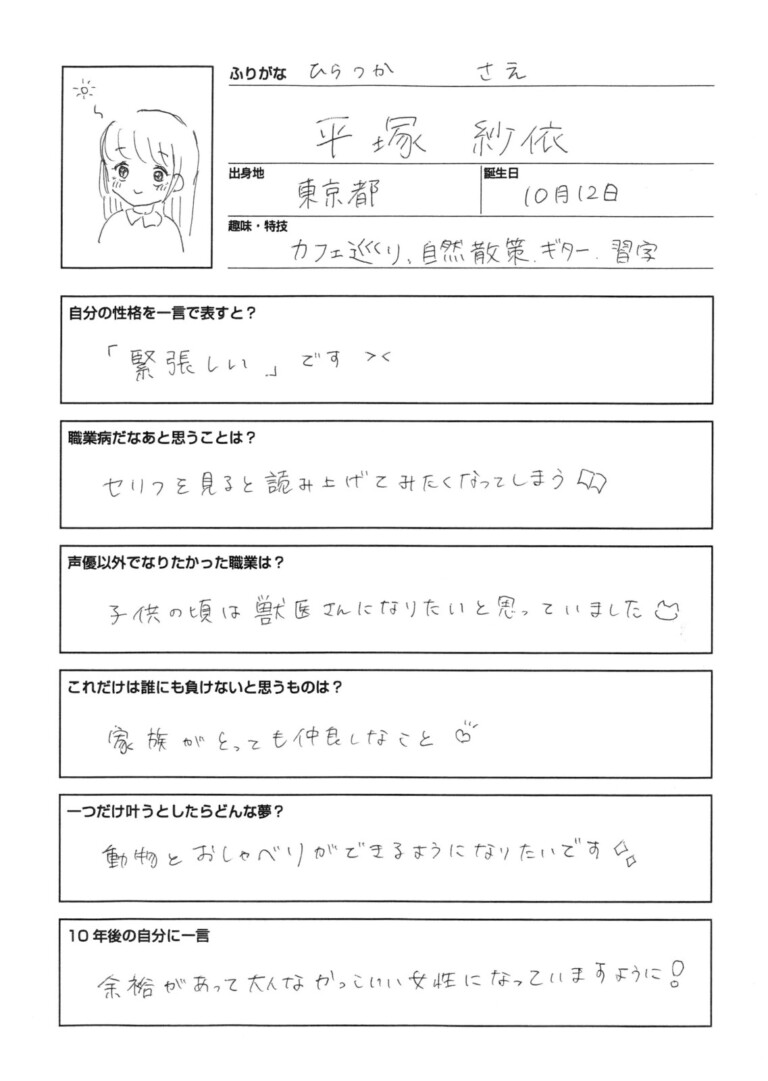 ふりがな ひらつか さえ
平塚 紗依
出身地 東京都 誕生日 10月12日
趣味・特技
カフェ巡り、自然散策、ギター、習字
自分の性格を一言で表すと？
「緊張しい」です ><
職業病だなあと思うことは？
セリフを見ると読み上げてみたくなってしまう
声優以外でなりたかった職業は？
子供の頃は獣医さんになりたいと思っていました
これだけは誰にも負けないと思うものは？
家族がとっても仲良しなこと
一つだけ叶うとしたらどんな夢？
動物とおしゃべりができるようになりたいです
10年後の自分に一言
余裕があって大人なかっこいい女性になっていますように！